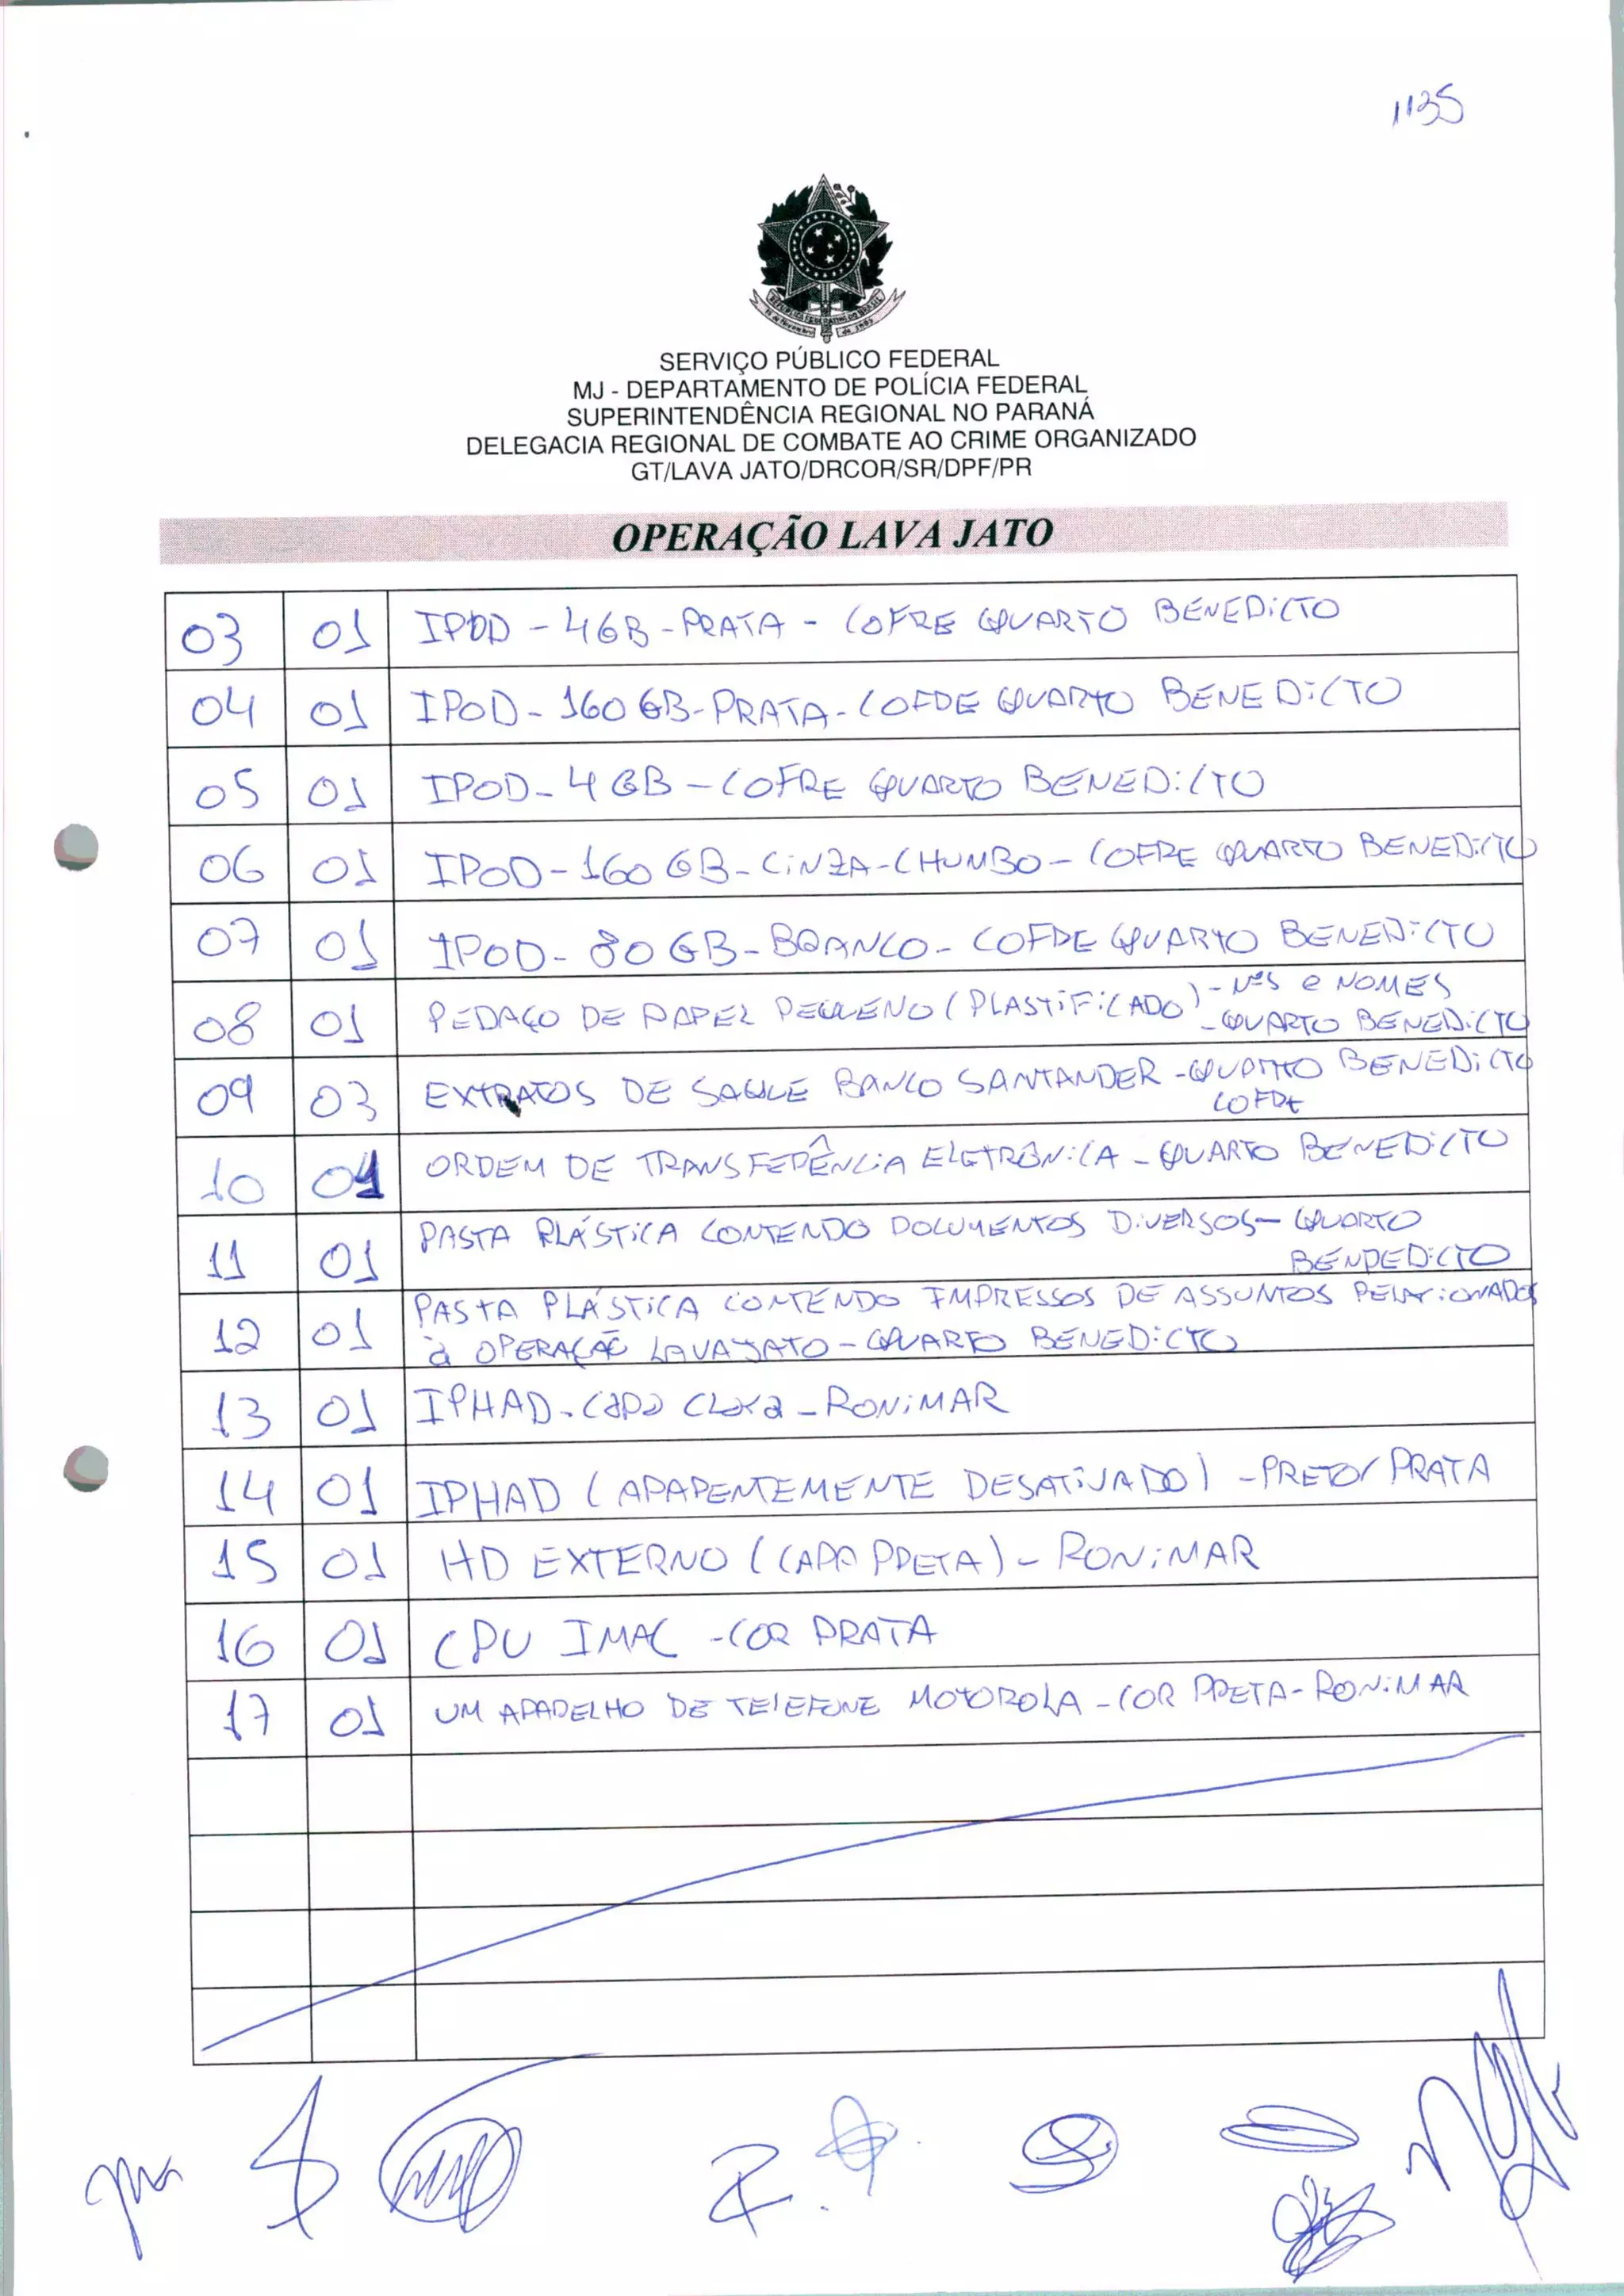 1135
REPÚBLICA FEDERATIVA DO BRASIL
15 de Novembro de 1889
SERVIÇO PÚBLICO FEDERAL
MJ - DEPARTAMENTO DE POLÍCIA FEDERAL
SUPERINTENDÊNCIA REGIONAL NO PARANÁ
DELEGACIA REGIONAL DE COMBATE AO CRIME ORGANIZADO
GT/LAVA JATO/DRCOR/SR/DPF/PR
OPERAÇÃO LAVA JATO
03 01 IPOD - 4GB - PRATA - COFRE QUARTO BENEDICTO
04 01 IPOD - 160 GB - PRATA - COFRE QUARTO BENEDICTO
05 01 IPOD - 4 GB - COFRE QUARTO BENEDICTO
06 01 IPOD - 160 GB - CINZA - CHUMBO - COFRE QUARTO BENEDICTO
07 01 IPOD - 80 GB - BRANCO - COFRE QUARTO BENEDICTO
08 01 PEDAÇO DE PAPEL PEQUENO (PLASTIFICADO) - NºS e NOMES
- QUARTO BENEDICTO
09 03 EXTRATOS DE SAQUE BANCO SANTANDER - QUARTO BENEDICTO
COFRE
10 01 ORDEM DE TRANSFERÊNCIA ELETRÔNICA - QUARTO BENEDICTO
11 01 PASTA PLÁSTICA CONTENDO DOCUMENTOS DIVERSOS - QUARTO
BENDEDICTO
12 01 PASTA PLÁSTICA CONTENDO IMPRESSOS DE ASSUNTOS RELACIONADOS
à OPERAÇÃO LAVAJATO - QUARTO BENEDICTO
13 01 IPHAD - CAPA CLARA - RONIMAR
14 01 IPHAD (APARENTEMENTE DESATIVADO) - PRETO/PRATA
15 01 HD EXTERNO (CAPA PRETA) - RONIMAR
16 01 CPU IMAC - COR PRATA
17 01 UM APARELHO DE TELEFONE MOTOROLA - COR PRETA - RONIMAR